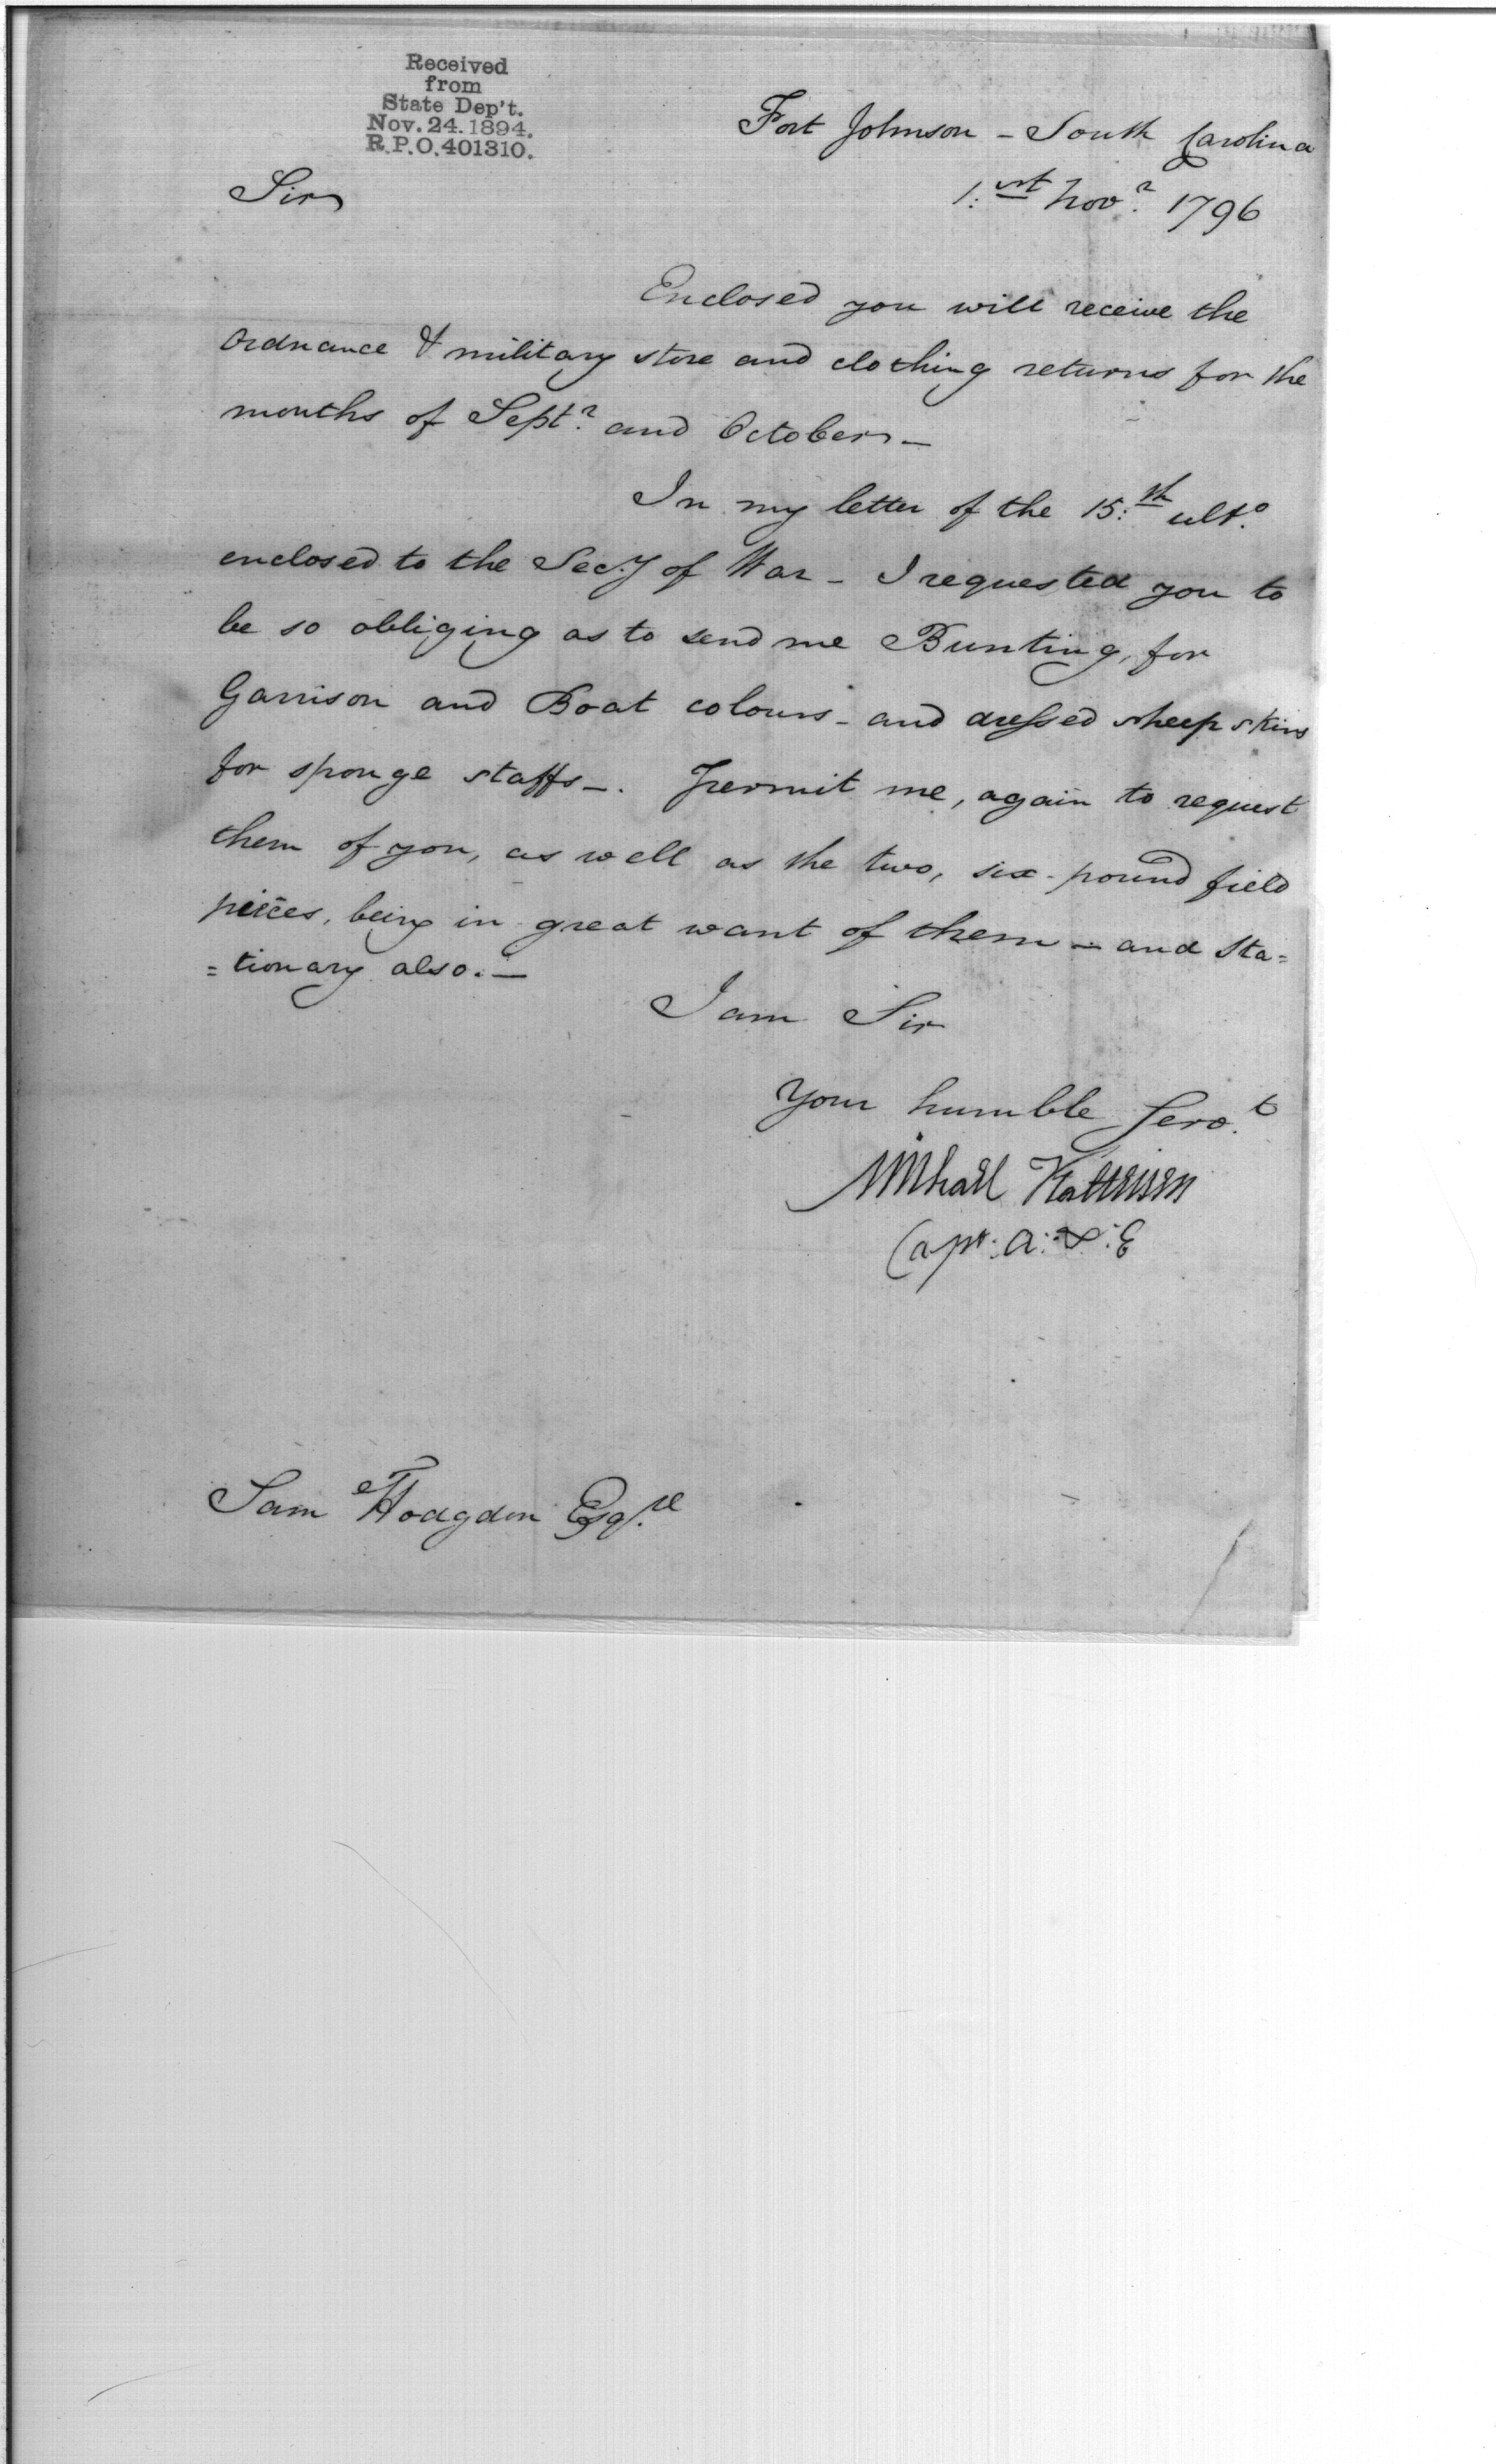 Received
from
State Dep't.
Nov. 24. 1894.
R.P.O. 401310.
Fort Johnson - South Carolina
1:st Novr. 1796
Sir
Enclosed you will receive the
Ordnance & military store and clothing returns for the
months of Septr. and October. -
In my letter of the 15:th ulto.
enclosed to the Sec.y of War - I requested you to
be so obliging as to send me Bunting, for
Garrison and Boat colours - and dressed sheep skins
for sponge staffs -. Permit me, again to request
them of you, as well as the two, six-pound field
peices, being in great want of them - and sta=
=tionary also. -
I am Sir
Your humble Servt.
Michael Kalteisen
Capt: A: & E
Sam Hodgdon Esqre.